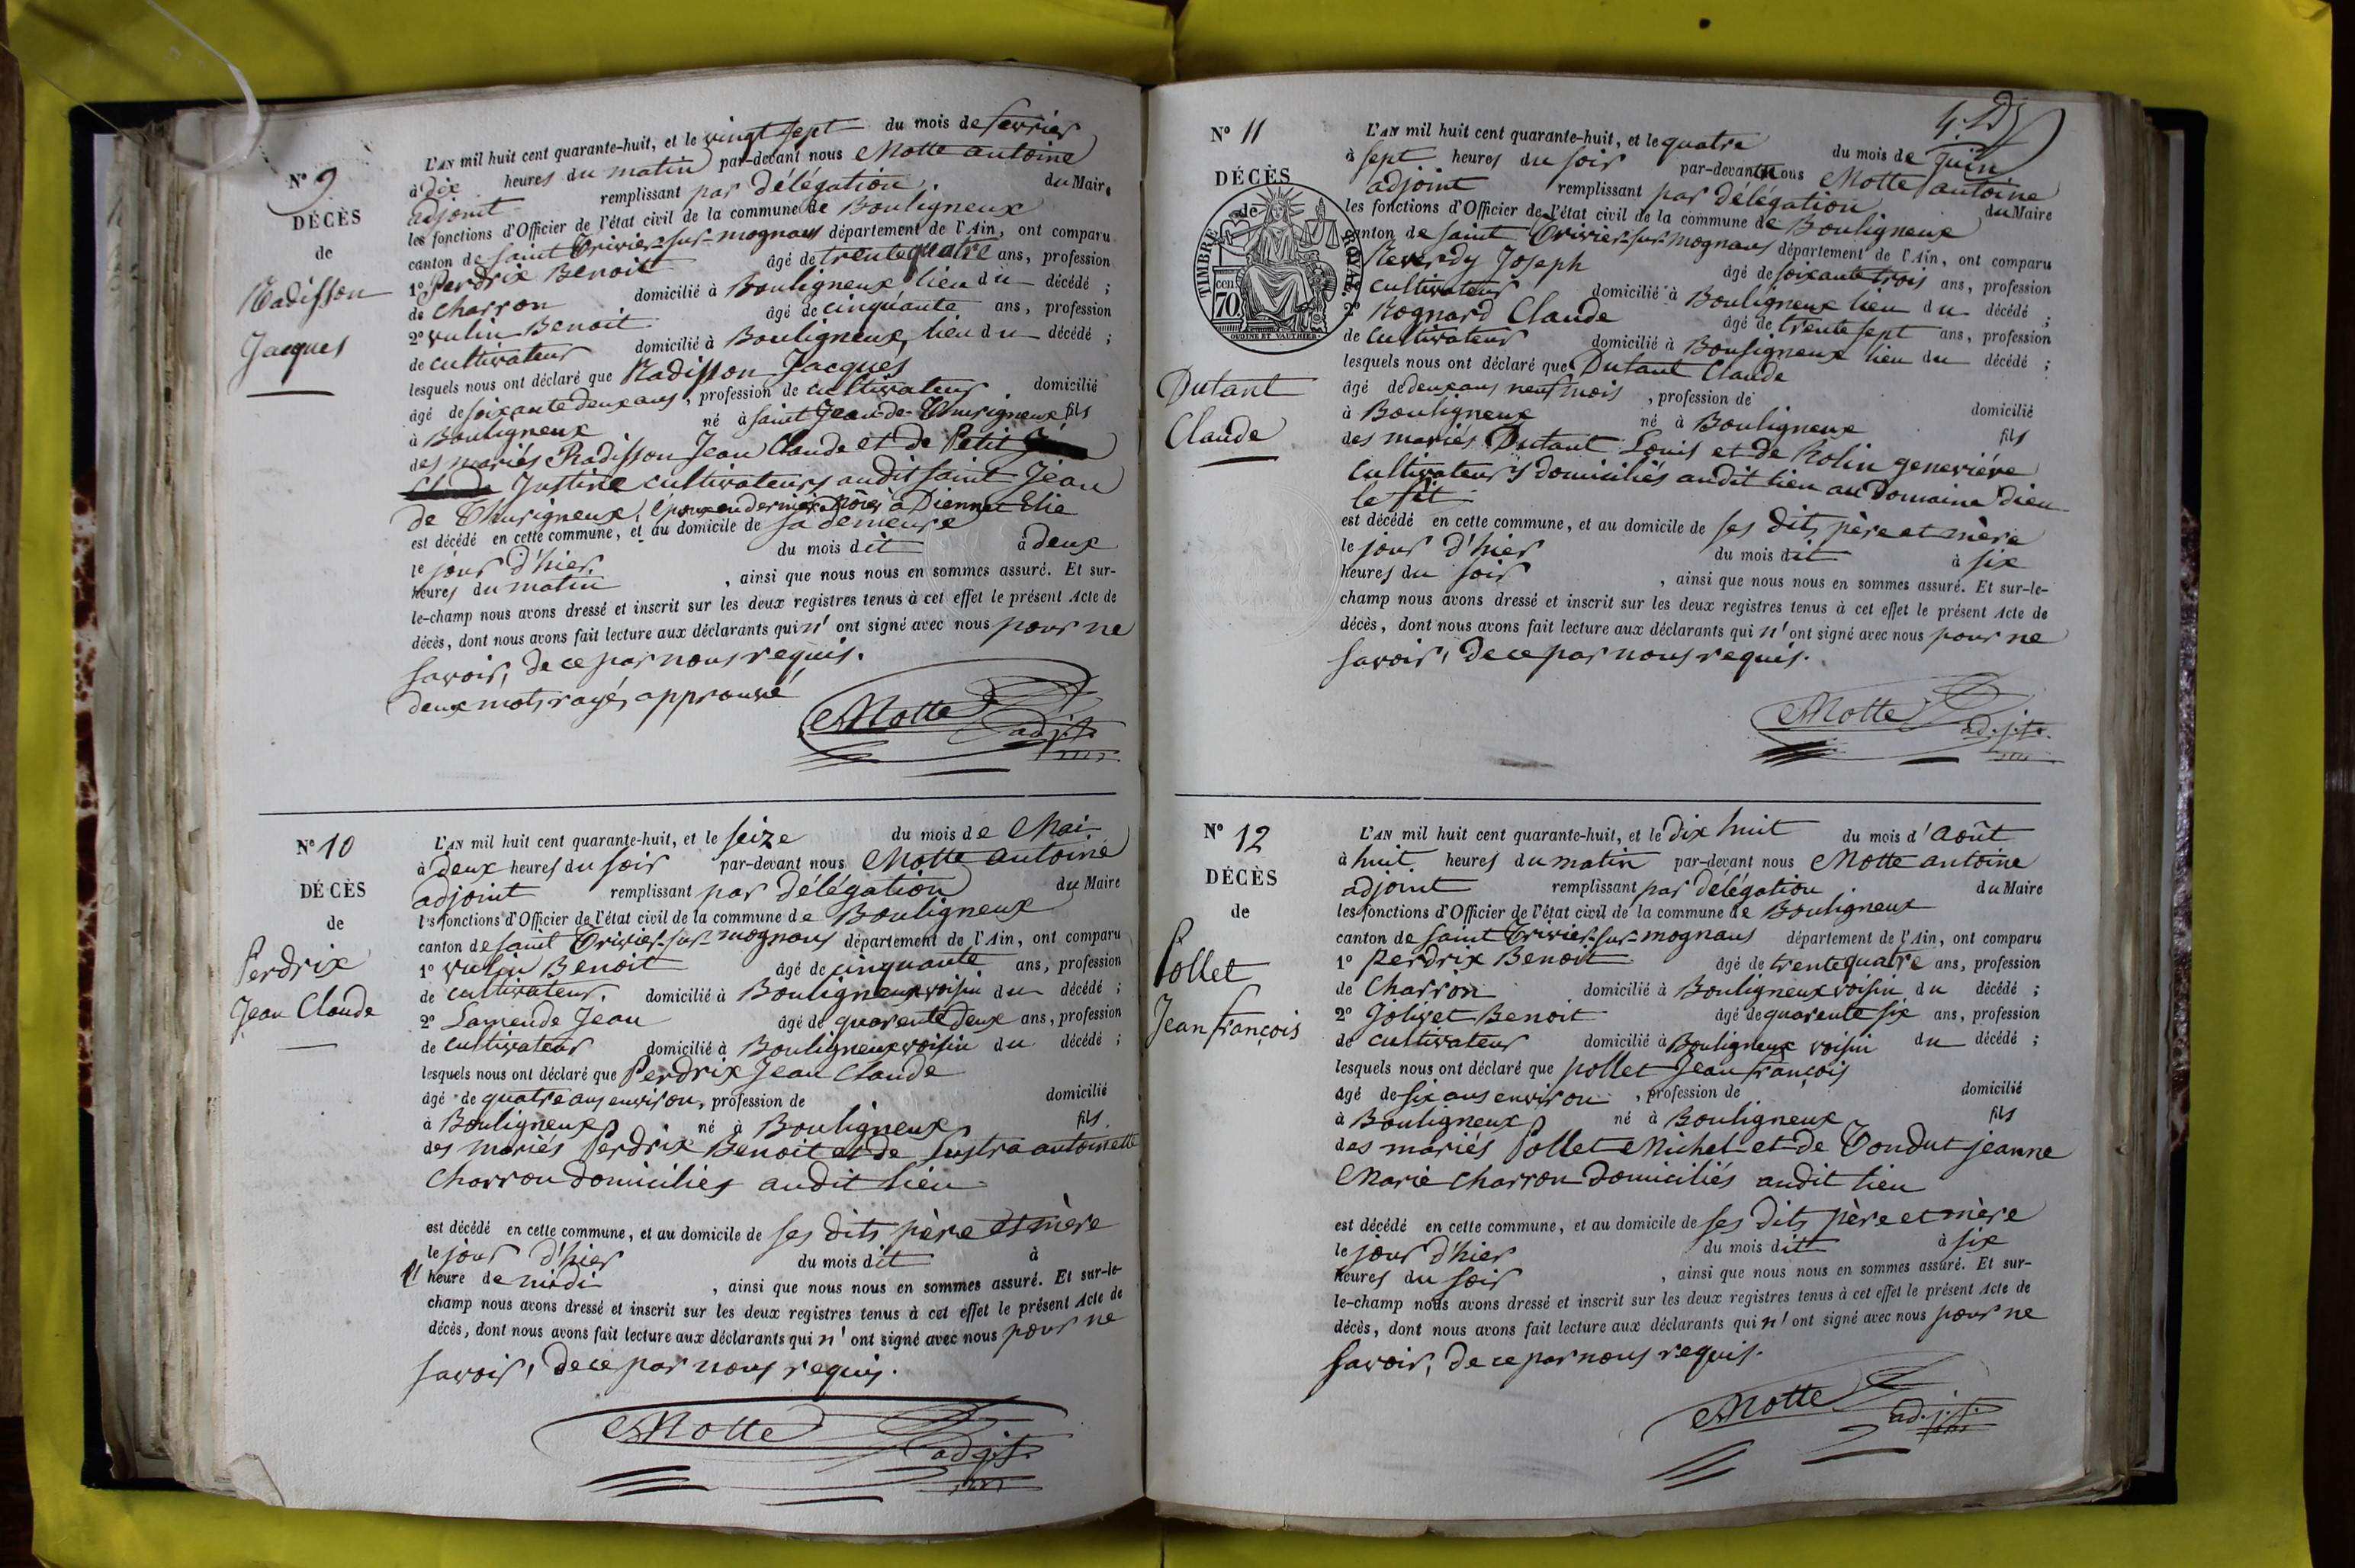 N° 9
DÉCÈS
de
Radisson
Jacques
L'AN mil huit cent quarante-huit, et le vingt sept du mois de fevrier
à dix heures du matin par-devant nous Motte antoine
adjoint remplissant par délégation du Maire
les fonctions d'Officier de l'état civil de la commune de Bouligneux
canton de saint Trivier-sur-mognans département de l'Ain, ont comparu
1° Perdrix Benoit âgé de trente quatre ans, profession
de charron domicilié à Bouligneux lieu du décédé ;
2° vulin Benoit âgé de cinquante ans, profession
de cultivateur domicilié à Bouligneux, lieu du décédé ;
lesquels nous ont déclaré que Radisson Jacques
âgé de soixante deux ans, profession de cultivateur domicilié
à Bouligneux né à saint Jean de Thurigneux fils
des mariés Radisson Jean Claude et de Petit
Justine cultivateurs audit saint Jean
de Thurigneux, époux en dernier à Diennet Elie
est décédé en cette commune, et au domicile de sa demeure
le jour d'hier du mois dit à deux
heures du matin , ainsi que nous nous en sommes assuré. Et sur-
le-champ nous avons dressé et inscrit sur les deux registres tenus à cet effet le présent Acte de
décès, dont nous avons fait lecture aux déclarants qui n' ont signé avec nous pour ne
savoir, de ce par nous requis.
deux mots rayés approuvé
Motte
adjt
N° 10
DÉCÈS
de
Perdrix
Jean Claude
L'AN mil huit cent quarante-huit, et le seize du mois de Mai
à deux heures du soir par-devant nous Motte antoine
adjoint remplissant par délégation du Maire
les fonctions d'Officier de l'état civil de la commune de Bouligneux
canton de saint Trivier-sur-mognans département de l'Ain, ont comparu
1° vulin Benoit âgé de cinquante ans, profession
de cultivateur. domicilié à Bouligneux voisin du décédé ;
2° Lamende Jean âgé de quarente deux ans, profession
de cultivateur domicilié à Bouligneux voisin du décédé ;
lesquels nous ont déclaré que Perdrix Jean Claude
âgé de quatre ans environ, profession de domicilié
à Bouligneux né à Bouligneux fils
des mariés Perdrix Benoit et de Sustra antoinette
charron domiciliés audit lieu
est décédé en cette commune, et au domicile de ses dits père et mère
le jour d'hier du mois dit à
11 heure de midi , ainsi que nous nous en sommes assuré. Et sur-le-
champ nous avons dressé et inscrit sur les deux registres tenus à cet effet le présent Acte de
décès, dont nous avons fait lecture aux déclarants qui n' ont signé avec nous pour ne
savoir, de ce par nous requis.
Motte
adjt
N° 11
DÉCÈS
de
TIMBRE ROYAL
70 cen
OUDINE ET VAUTHIER
Dutant
Claude
L'AN mil huit cent quarante-huit, et le quatre du mois de Juin
à sept heures du soir par-devant nous Motte antoine
adjoint remplissant par délégation du Maire
les fonctions d'Officier de l'état civil de la commune de Bouligneux
canton de saint Trivier-sur-mognans département de l'Ain, ont comparu
Reverdy Joseph âgé de soixante trois ans, profession
cultivateur domicilié à Bouligneux lieu du décédé ;
2° Rognard Claude âgé de trente sept ans, profession
de cultivateur domicilié à Bouligneux lieu du décédé ;
lesquels nous ont déclaré que Dutant Claude
âgé de deux ans neuf mois , profession de domicilié
à Bouligneux né à Bouligneux fils
des mariés Dutant Louis et de Rolin geneviéve
cultivateurs domiciliés audit lieu au Domaine dieu
le fit
est décédé en cette commune, et au domicile de ses dits père et mère
le jour d'hier du mois dit à six
heures du soir , ainsi que nous nous en sommes assuré. Et sur-le-
champ nous avons dressé et inscrit sur les deux registres tenus à cet effet le présent Acte de
décès, dont nous avons fait lecture aux déclarants qui n' ont signé avec nous pour ne
savoir, de ce par nous requis.
Motte
adjt
N° 12
DÉCÈS
de
Pollet
Jean françois
L'AN mil huit cent quarante-huit, et le dix huit du mois d'août
à huit heures du matin par-devant nous Motte antoine
adjoint remplissant par délégation du Maire
les fonctions d'Officier de l'état civil de la commune de Bouligneux
canton de saint Trivier-sur-mognans département de l'Ain, ont comparu
1° Perdrix Benoit âgé de trente quatre ans, profession
de Charron domicilié à Bouligneux voisin du décédé ;
2° Jolivet Benoit âgé de quarente six ans, profession
de cultivateur domicilié à Bouligneux voisin du décédé ;
lesquels nous ont déclaré que pollet Jean françois
âgé de six ans environ , profession de domicilié
à Bouligneux né à Bouligneux fils
des mariés Pollet Michel et de Tondut jeanne
Marie charron domiciliés audit lieu
est décédé en cette commune, et au domicile de ses dits père et mère
le jour d'hier du mois dit à six
heures du soir , ainsi que nous nous en sommes assuré. Et sur-
le-champ nous avons dressé et inscrit sur les deux registres tenus à cet effet le présent Acte de
décès, dont nous avons fait lecture aux déclarants qui n' ont signé avec nous pour ne
savoir, de ce par nous requis.
Motte
adjt